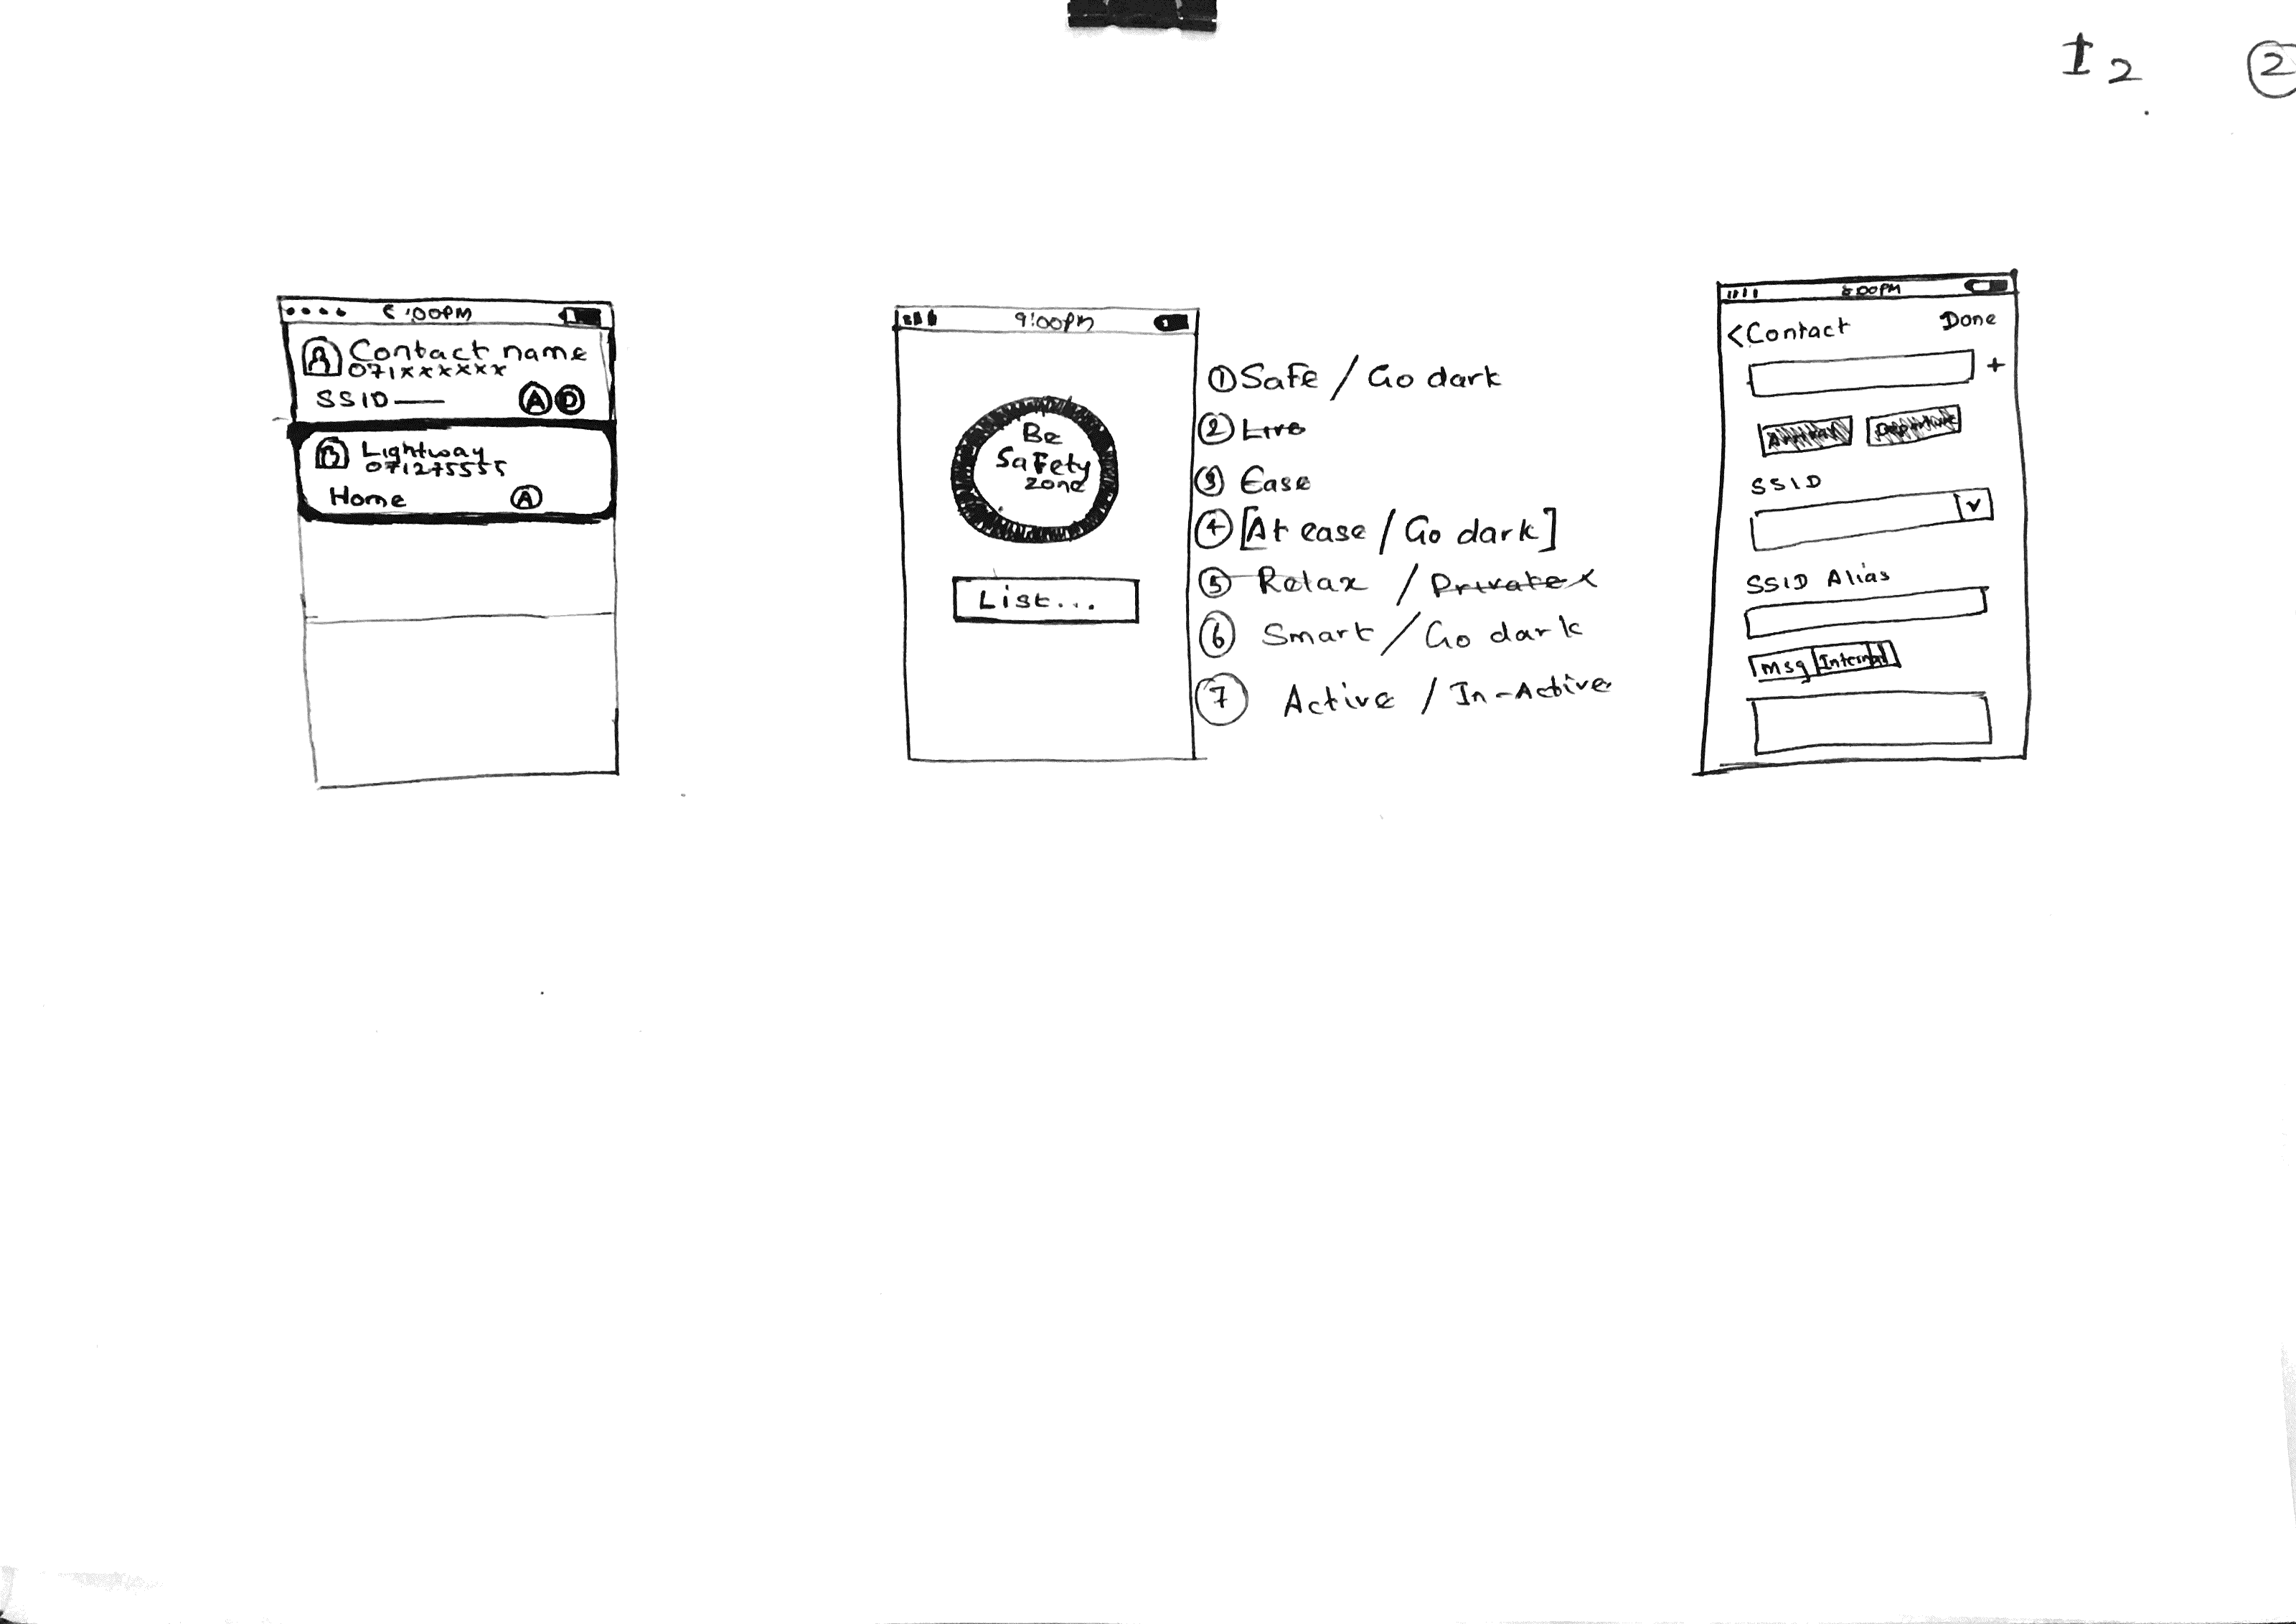 I2 ②
8:00PM
Contact name
071xxxxxx
SSID
A D
Lightway
071275555
Home A
9:00PM
Be
Safety
zone
List...
① Safe / Go dark
② Live
③ Ease
④ [At ease / Go dark]
⑤ Relax / Private x
⑥ Smart / Go dark
⑦ Active / In-Active
8:00PM
<Contact Done
+
Arrival Departure
SSID
SSID Alias
Msg Internal